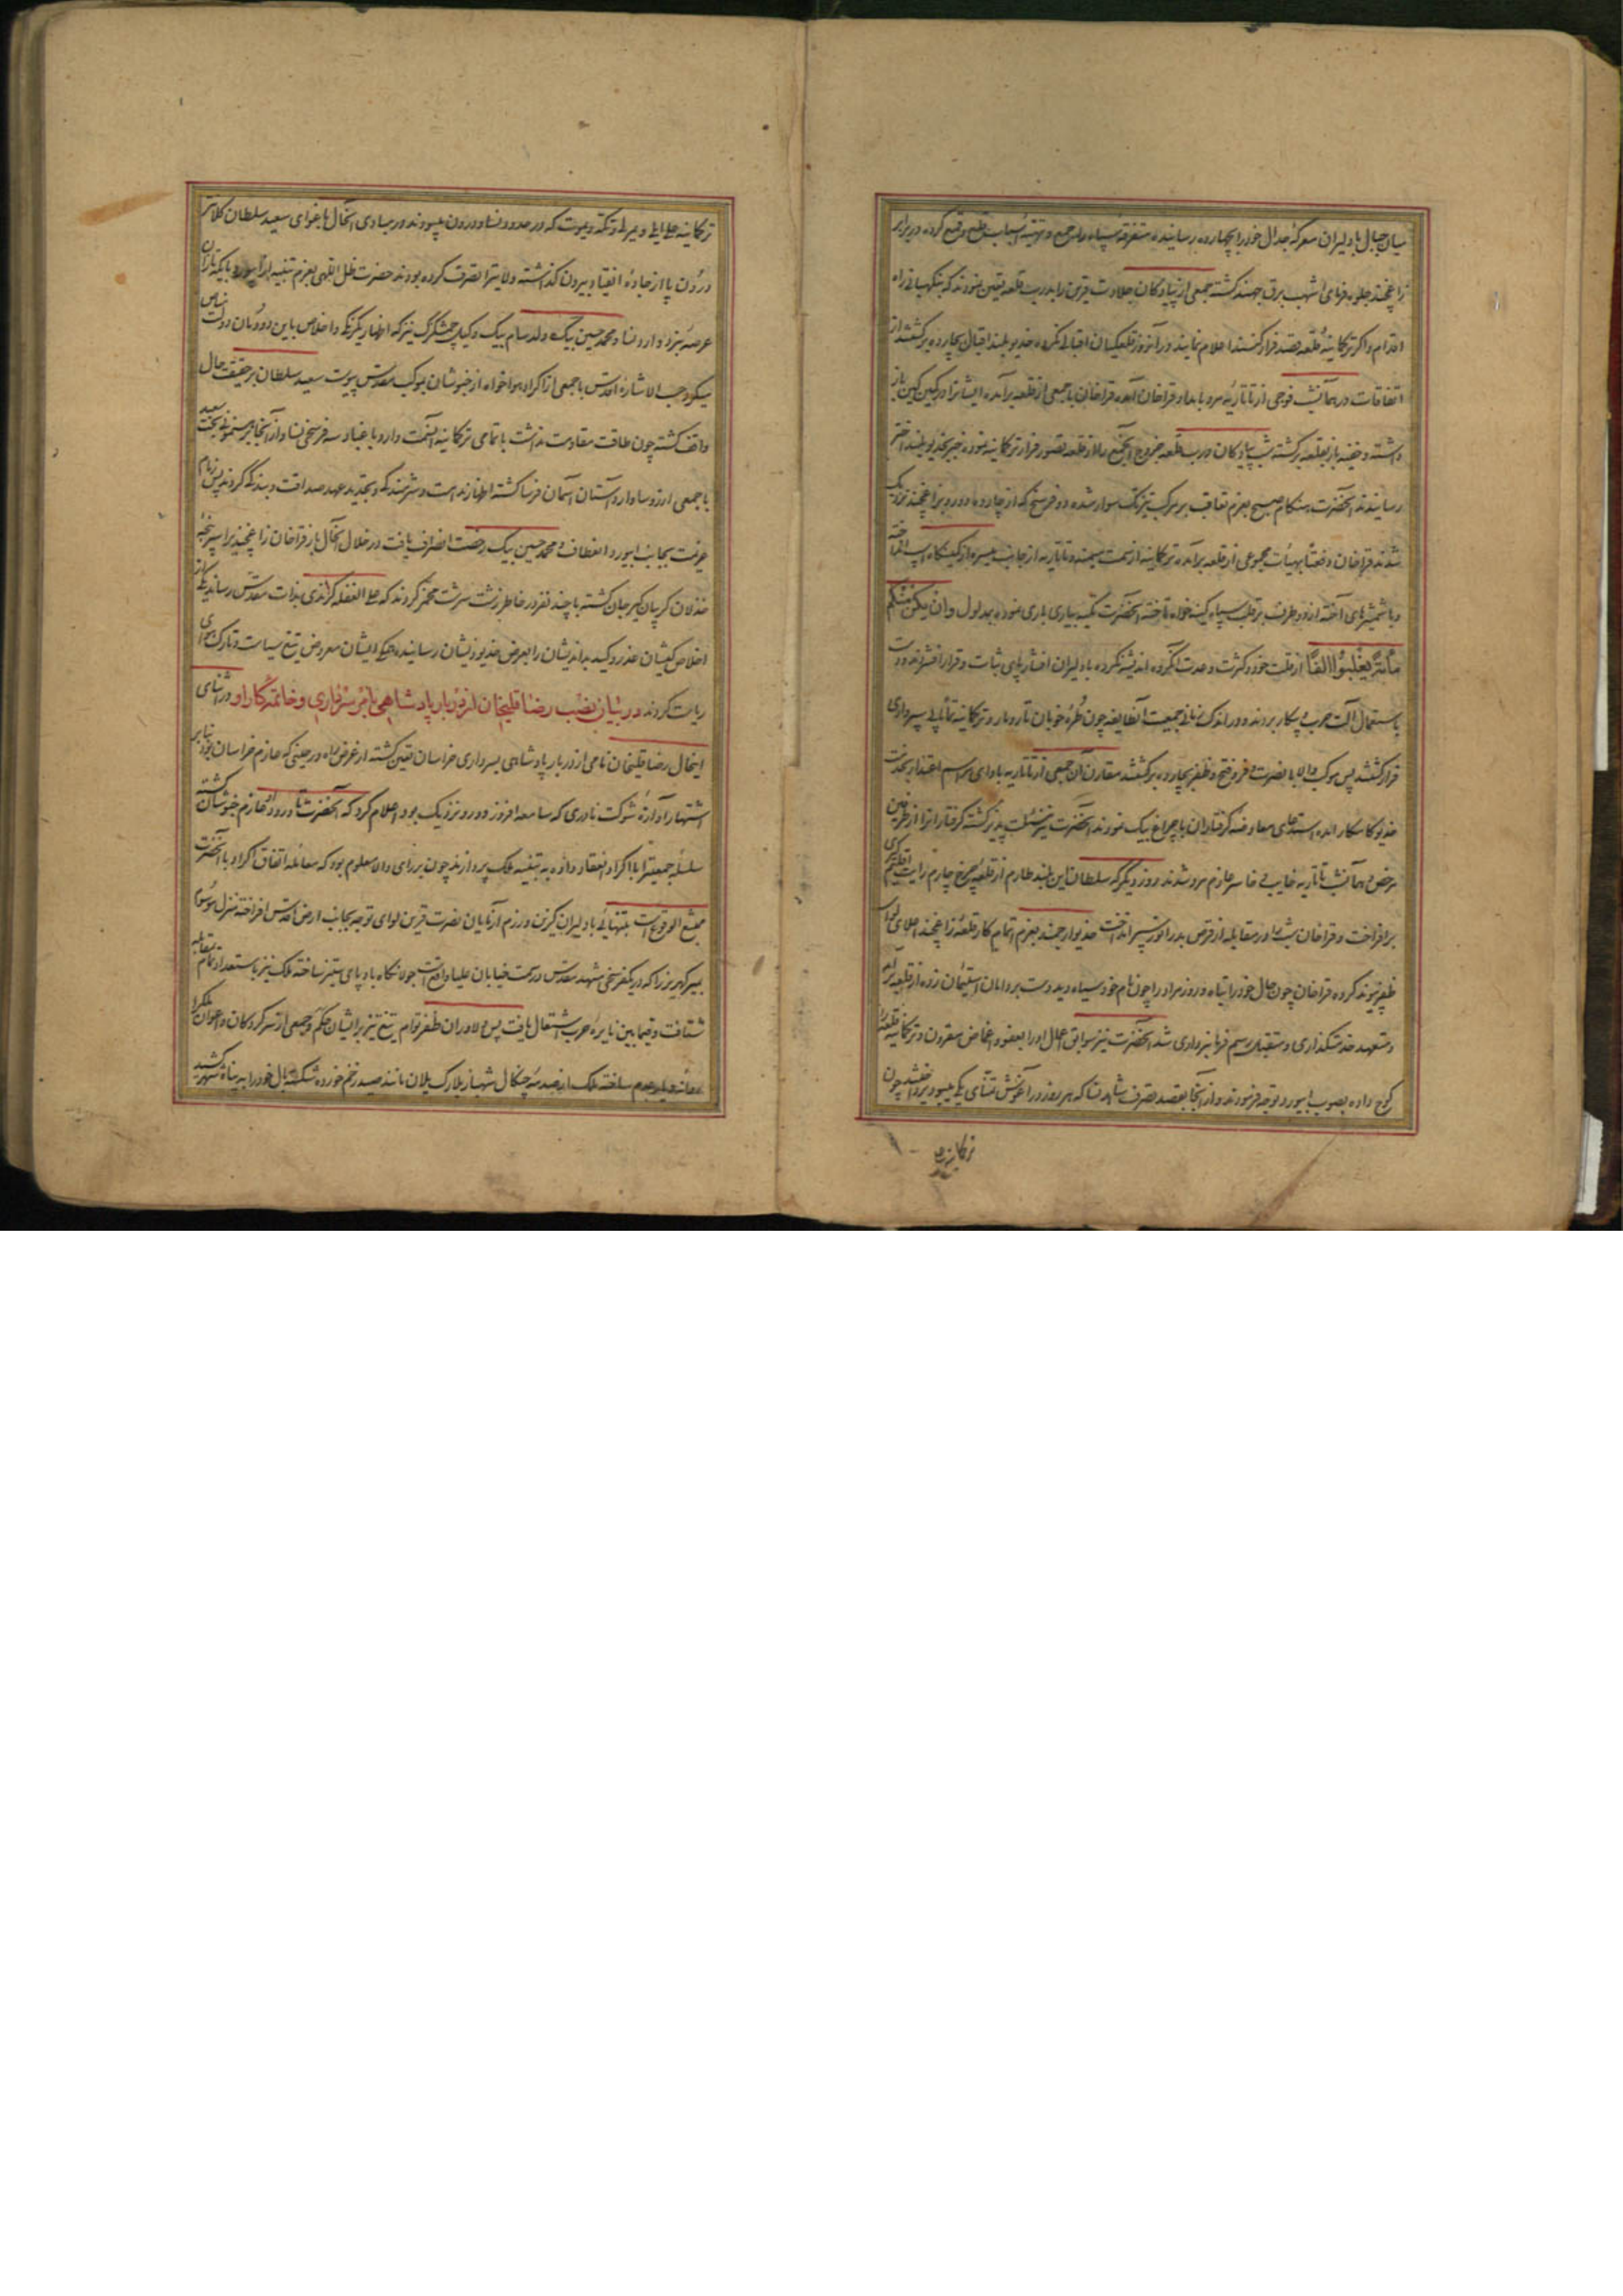 میان جبال با دلیران معرکهٔ جدال خود را بچهارده رسانیده متفرقهٔ سپاه را جمع و تهیهٔ اسباب قلع و قمع کرده در برابر
زاغچند جلوه فرمای اشهب برق جهنده گشته جمعی از پیادگان جلادت قرین را بدرب قلعه تعیین نمودند که بنگهبانی راه
اقدام و اگر ترکمانیهٔ قلعه بقصد فرار کنند اعلام نمایند در آنروز قلعگیان اقبالی نکرده خدیو بلند اقبال بچارده برگشتند از
اتفاقات در همانشب فوجی از تاتاریهٔ مرو بامداد قراخان آمده قراخان با جمعی از قلعه برآمده ایشانرا در کمین کین باز
داشته و خفیه باز بقلعه برگشته شب پیادگان درب قلعه خروج آنجمع را از قلعه تصور فرار ترکمانیه نموده خبر بخدیو بلند اختر
رسانیدند آنحضرت هنگام صبح بعزم تعاقب بر مرکب تیزتک سوار شده دو فرسخ که از چارده دور و بزاغچند نزدیک
شدند قراخان دفعتاً بهیأت مجموعی از قلعه برآمده ترکمانیه از سمت میمنه و تاتاریه از جانب میسره از کمینگاه اسب انداخته
و با شمشیرهای آخته از دو طرف بر قلب سپاه کینه خواه تاخته آنحضرت تکیه بیاری باری نموده بمدلول و ان یکن منکم
مائة یغلبوا الفا از قلت خود و کثرت و عدت آنگروه اندیشه نکرده با دلیران افشار پای ثبات و قرار افشرده دست
باستعمال آلت حرب و پیکار بردند و در اندک زمانی جمعیت آنطایفه چون طرهٔ خوبان تار و مار و ترکمانیه تمامی سپرداری
فرار گشتند پس موکب والا با نصرت و فر و فتح و ظفر بچارده برگشتند مقارن آن جمعی از تاتاریه بادای مراسم اعتذار بخدمت
خدیو کامکار آمده استدعای معاوضهٔ گرفتاران با چراغ بیک نمودند آنحضرت نیز مسئلت پذیر گشته گرفتارانرا از طرفین
مرخص و همانشب تاتاریه خایب و خاسر عازم مرو شدند روز دیگر که سلطان این بلند طارم از قلعهٔ چرخ چارم رایت اقلیم گیری
برافراخت و قراخان شب را در مقابله از قرص بدر انور سپر انداخت خدیو ارجمند بعزم اتمام کار قلعهٔ زاغچند اعلای لوای
ظفر پیوند کرده قراخان چون حال خود را تباه و روز مراد را چون نام خود سیاه دید دست بر دامان استیمان زده از قلعه برآمد
و متعهد خدمتگذاری و متقبل رسم فرمانبرداری شد آنحضرت نیز سوابق اعمال او را بعفو و اغماض مقرون و ترکمانیهٔ قلعه را
کوچ داده بصوب ابیورد توجه فرمودند و از آنجا بقصد تصرف شاهد نسا که هر روز در آغوش تمنای یکی میبود پرداختند چون
ترکمانیهٔ
ترکمانیهٔ علی ایلی و یمرلی و تکه و یموت که در حدود نسا و درون میبودند در مبادی اینحال باغوای سعید سلطان کلانتر
درون پا از جادهٔ انقیاد بیرون گذاشته ولایترا تصرف کرده بودند حضرت ظل اللهی بعزم تنبیه از ابیورد با یکه تازان
عرصهٔ نبرد وارد نسا و محمد حسین بیک ولد سام بیک وکیل چمشگزک نیز که اظهار یکرنگی و اخلاص باین دودمان دولت بنیاس
میکرد حسب الاشارهٔ اقدس با جمعی از اکراد هواخواه از خبوشان بموکب مقدس پیوست سعید سلطان بر حقیقت حال
واقف گشته چون طاقت مقاومت نداشت با تمامی ترکمانیهٔ آنسمت وارد باغباد سه فرسخی نسا و از آنجا برهنمونی بخت سعید
با جمعی ارزو ساوارد آستان آسمان فرسا گشته اظهار ندامت و شرمندگی و تجدید عهد صداقت و بندگی کردند پس زمام
عزیمت بجانب ابیورد انعطاف و محمد حسین بیک رخصت انصراف یافت در خلال آنحال باز قراخان زاغچندی را سرپنجهٔ
خذلان گریبان گیر جان گشته با چند نفر در خاطر زشت سرشت مخمر کردند که علی الغفله گزندی بذات مقدس رسانند یکی از
اخلاص کیشان غدر و کید بداندیشان را بعرض خدیو زنشان رسانیده همگی ایشان معروض تیغ سیاست و تارک سوای
ریاست کردند در بیان نصب رضا قلیخان از دربار پادشاهی بامر سرداری و خاتمهٔ کار او و در اثنای
اینحال رضا قلیخان نامی از دربار پادشاهی بسرداری خراسان تعیین گشته از عرض راه در حینی که عازم خراسان بود بنابر
اشتهار آوازهٔ شوکت نادری که سامعه افروز دور و نزدیک بود اعلام کرد که آنحضرت تا ورود او عازم خبوشان گشته
سلسلهٔ جمعیترا با اکراد انعقاد داده به تنبیه ملک پردازند چون بر رای والا معلوم بود که معامله اتفاق اکراد با آنحضرت
ممتنع الوقوعست بتنهائی با دلیران گزین و رزم آزمایان نصرت قرین لوای توجه بجانب ارض اقدس افراخته منزل موسوم
بمیر کهریز را که در یکفرسخی مشهد مقدس در سمت خیابان علیا واقعست جولانگاه باد پای ستیز ساخته ملک نیز باستعداد تمام بمقابله
شتافت و فیمابین نایرهٔ حرب اشتعال یافت پس دلاوران ظفر توام تیغ تیز بر ایشان حکم و جمعی از سرکردگان و اعوان ملک را
روانهٔ دیار عدم ساخته ملک از صدمهٔ چنگال شهباز بلارک یلان مانند صید زخم خورده شکسته بال خود را به پناه شهر کشید